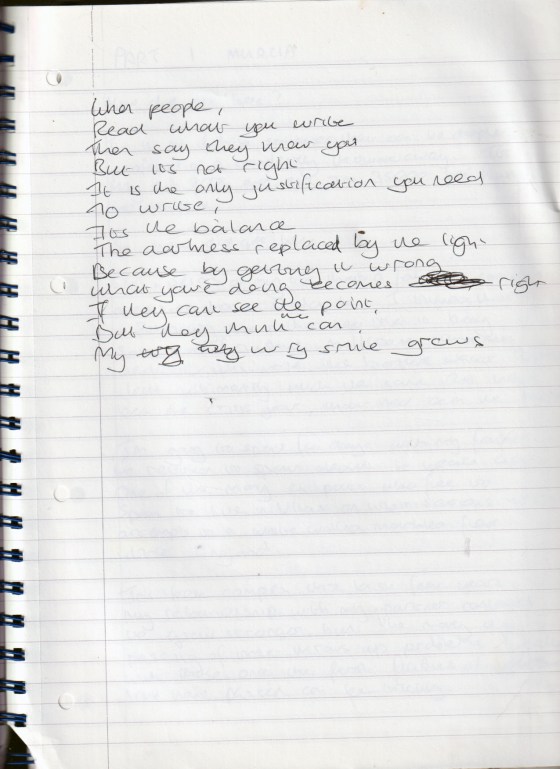 When people,
Read what you write
Then say they know you
But it's not right
It is the only justification you need
To write,
Its the balance
The darkness replaced by the light
Because by getting it wrong
What your doing becomes right
If they cant see the point,
But they think they can,
My wry smile grows